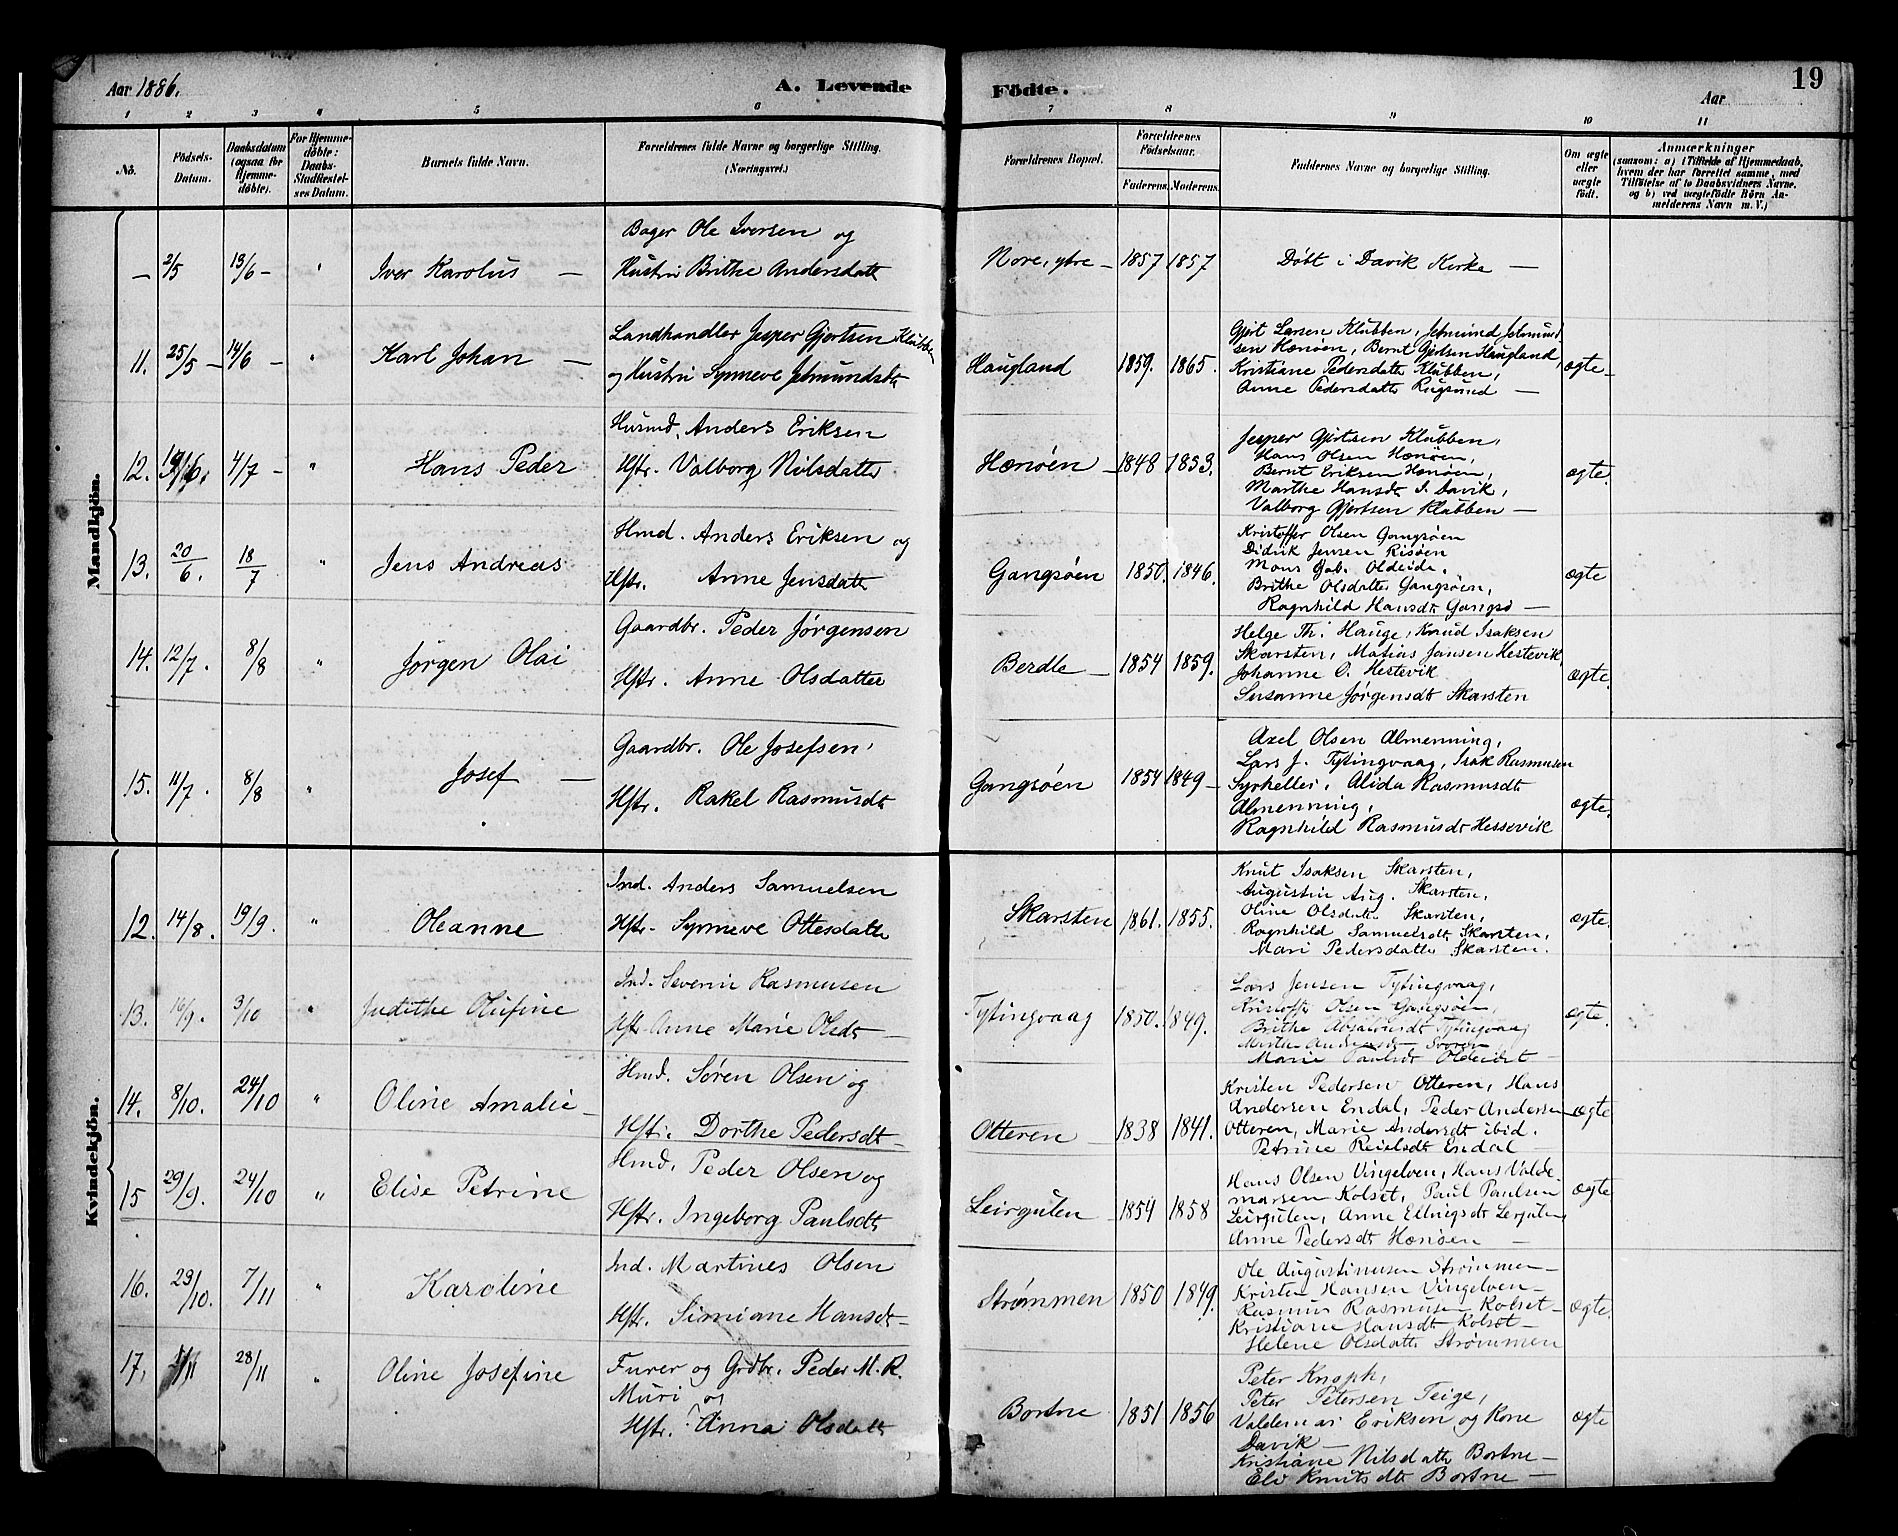 Aar 1886.
A. Levende
Födte.
19
Aar
1 2 3 4 5 6 7 8 9 10 11
No.
Födsels-
Datum.
Daabsdatum
(ogsaa for
Hjemme-
döbte).
For Hjemme-
döbte:
Daabs-
Stadfæstel-
ses Datum.
Barnets fulde Navn.
Forældrenes fulde Navne og borgerlige Stilling.
(Næringsvei.)
Forældrenes Bopæl.
Forældrenes
Födselsaar.
Faderens. Moderens.
Faddernes Navne og borgerlige Stilling.
Om ægte
eller
uægte
födt.
Anmærkninger
(saasom: a) i Tilfælde af Hjemmedaab,
hvem der har forrettet samme, med
Tilföielse af to Daabsvidners Navne,
og b) ved uægtefödte Börn An-
melderens Navn m. V.)
Mandkjön.
— 2/5 13/6 – " Iver Karolus —
Bager Ole Iversen og
Hustri Brithe Andersdatt
Nore, ytre – 1857 1857
Døbt i Davik Kirke —
11. 25/5 – 14/6 – " Karl Johan —
Landhandler Jesper Gjertsen Klubben
og Hustri Synneve Jetmundsdt
Haugland 1859. 1865.
Gjert Larsen Klubben, Jetmund Jetmund
sen Hænøen, Bernt Gjertsen Haugland,
Kristiane Pedersdatt Klubben,
Anne Pedersdatt Rugsund —
ægte –
12. 4/7 – " Hans Peder
Husmd. Anders Eriksen
Hstr. Valborg Nilsdatter
Hænøen – 1848 1853.
Jesper Gjertsen Klubben,
Hans Olsen Hænøen,
Bernt Eriksen Hænøen,
Marthe Hansdt I. Davik,
Valborg Gjertsen Klubben —
ægte.
13. 20/6. 18/7 " Jens Andreas
Hmd. Anders Eriksen og
Hstr. Anne Jensdatt
Gangsøen 1850. 1846.
Kristoffer Olsen Gangsøen
Didrik Jensen Risøen
Mons Gab. Oldeide.
Brithe Olsdatter Gangsøen,
Ragnhild Hansdt Gangsø —
ægte
14. 12/7. 8/8 " Jørgen Olai
Gaardbr. Peder Jørgensen
Hstr. Anne Olsdatter
Berdle – 1854 1859.
Helge Th. Hauge, Knud Isaksen
Skarsten, Matias Jansen Hestevik,
Johanne O. Hestevik
Susanne Jørgensdt Skarsten
ægte.
15. 11/7. 8/8 " Josef —
Gaardbr. Ole Josefsen,
Hstr. Rakel Rasmusdt
Gangsøen 1854 1849 –
Axel Olsen Almenning,
Lars J. Tytingvaag, Isak Rasmusen
Alida Rasmusdt
Almenning,
Ragnhild Rasmusdt Hessevik
ægte.
Kvindekjön.
12. 14/8. 19/9. " Oleanne
Ind. Anders Samuelsen
Hstr. Synneve Ottesdatt
Skarsten 1861. 1855.
Knut Isaksen Skarsten,
Augustin Aug. Skarsten,
Oline Olsdatt. Skarsten,
Ragnhild Samuelsdt Skarsten,
Mari Pedersdatter Skarsten.
ægte.
13. 16/9. 3/10 " Judithe Olufine
Ind. Severin Rasmusen
Hstr. Anne Marie Olsdt –
Tytingvaag 1850. 1849.
Lars Jensen Tytingvaag,
Kristoffer Olsen Gangsøen,
Brithe Tytingvaag
Marie Paulsdt Oldeidet –
ægte.
14. 8/10. 24/10 " Oline Amalie –
Hmd. Søren Olsen og
Hstr. Dorthe Pedersdt –
Otteren – 1838 1841.
Kristen Pedersen Otteren, Hans
Andersen Endal, Peder Andersen
Otteren, Marie Andersdt ibid.
Petrine Reielsdt Endal
ægte
15 29/9. 24/10 " Elise Petrine
Hmd. Peder Olsen og
Hstr. Ingeborg Paulsdt
Leirgulen – 1854 1858
Hans Olsen Vingelven, Hans Valde
marsen Kolset, Paul Paulsen
Leirgulen, Anne Ellingsdt Lergulen
Anne Pedersdt Hænøen —
ægte
16. 23/10. 7/11 " Karoline
Ind. Martines Olsen
Hstr. Simiane Hansdt –
Strømmen 1850 1849.
Ole Augustinusen Strømmen –
Kristen Hansen Vingelven –
Rasmus Rasmusen Kolset –
Kristiane Hansdt Kolset –
Helene Olsdatt Strømmen
ægte.
17. 28/11 " Oline Josefine
Furer og Grdbr. Peder M. R.
Muri og
Hstr. Anna Olsdatt
Bortne 1851 1856
Peter Knoph,
Peter Petersen Teige,
Valdemar Eriksen og Kone
Davik —
Kristiane Nilsdatt Bortne –
Knutsdt Bortne —
ægte